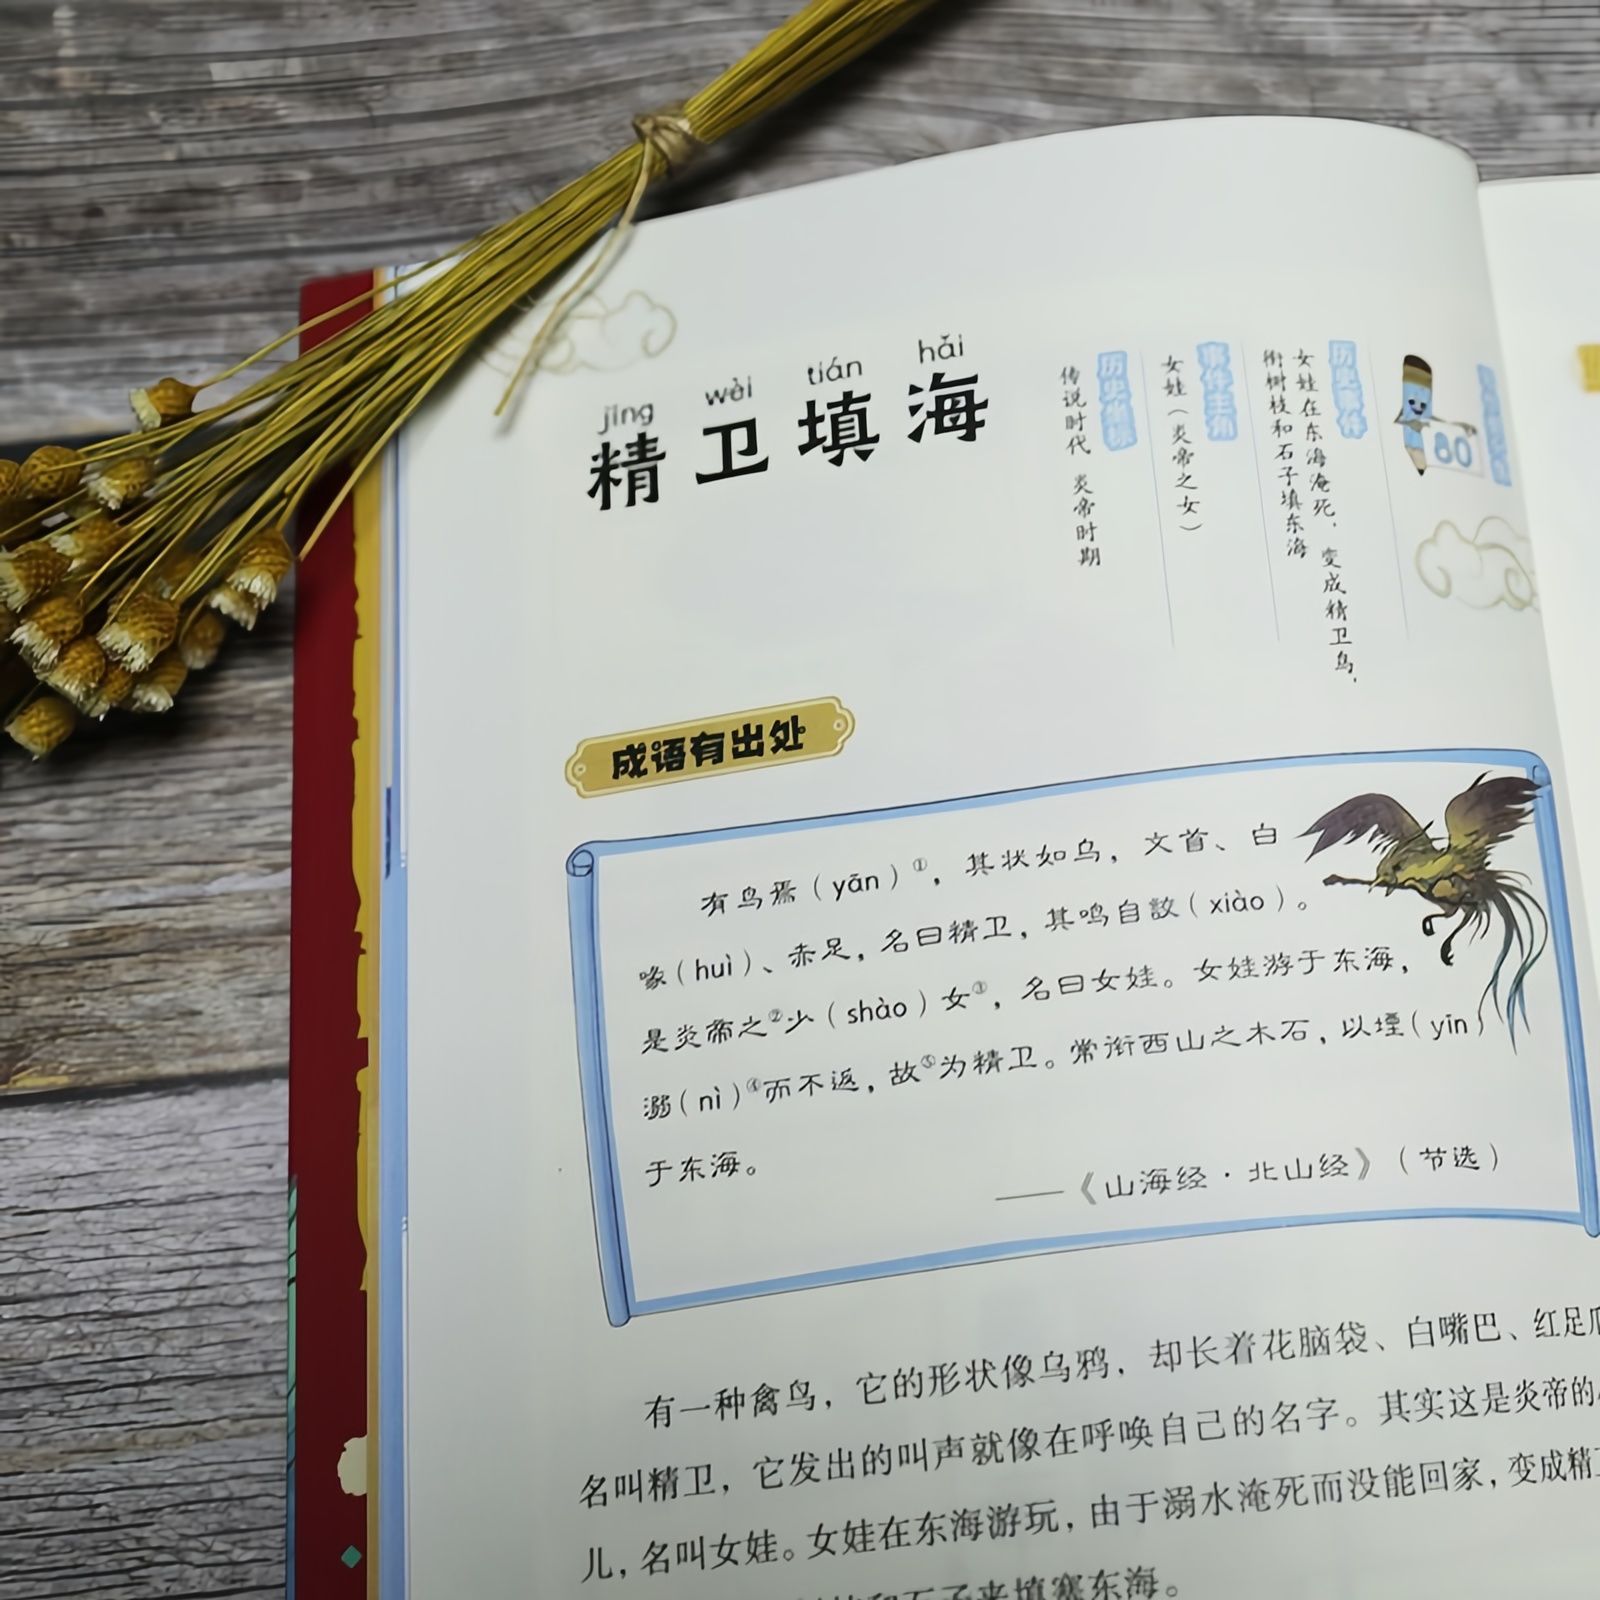 jīng wèi tián hǎi
精卫填海
历史坐标
传说时代 炎帝时期
事件主角
女娃（炎帝之女）
历史事件
女娃在东海淹死，变成精卫鸟，
衔树枝和石子填东海
80
成语有出处
有鸟焉（yān）①，其状如乌，文首、白
喙（huì）、赤足，名曰精卫，其鸣自詨（xiào）。
是炎帝之②少（shào）女③，名曰女娃。女娃游于东海，
溺（nì）④而不返，故⑤为精卫。常衔西山之木石，以堙（yīn）
于东海。
——《山海经·北山经》（节选）
有一种禽鸟，它的形状像乌鸦，却长着花脑袋、白嘴巴、红足爪
名叫精卫，它发出的叫声就像在呼唤自己的名字。其实这是炎帝的
儿，名叫女娃。女娃在东海游玩，由于溺水淹死而没能回家，变成精
和石子来填塞东海。